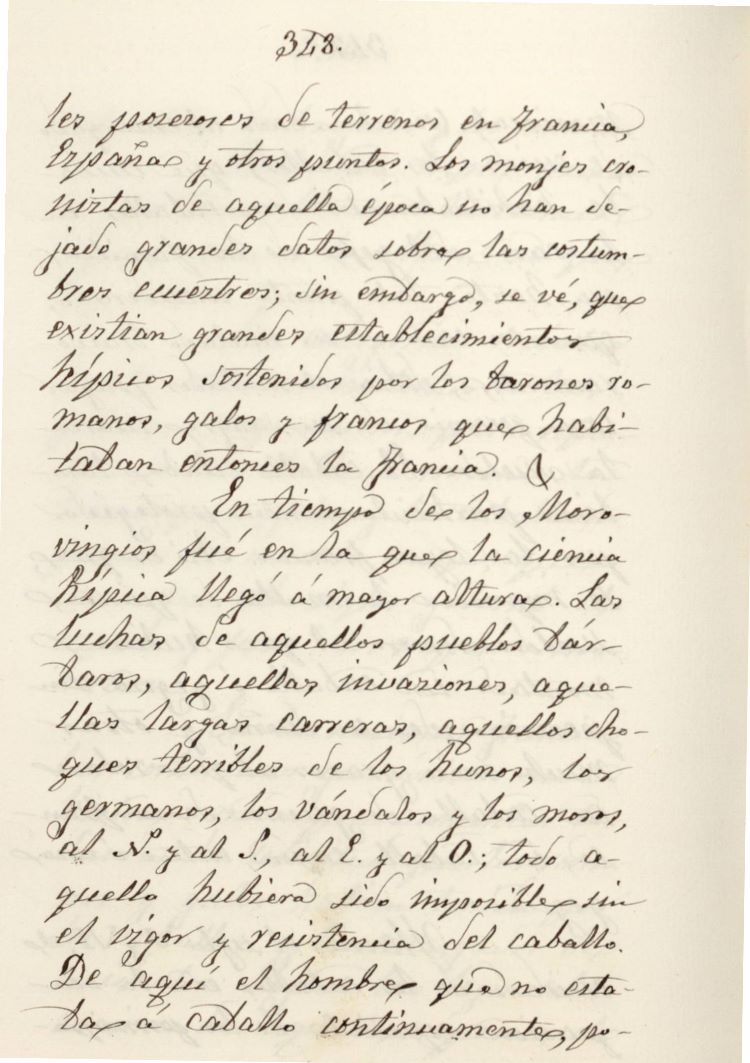 348.
les poseroses de terrenos en Francia,
España y otros puntos. Los monjes cro-
nistas de aquella época no han de-
jado grandes datos sobre las costum-
bres ecuestres; sin embargo, se vé, que
existian grandes establecimientos
hípicos sostenidos por los barones ro-
manos, galos y francos que habi-
taban entonces la Francia.
En tiempo de los Moro-
vingios fué en la que la ciencia
hípica llegó á mayor altura. Las
luchas de aquellos pueblos bár-
baros, aquellas invasiones, aque-
llas largas carreras, aquellos cho-
ques terribles de los hunos, los
germanos, los vándalos y los moros,
al N. y al S., al E. y al O.; todo a-
quello hubiera sido imposible sin
el vigor y resistencia del caballo.
De aquí el hombre que no esta-
ba á caballo continuamente, po-